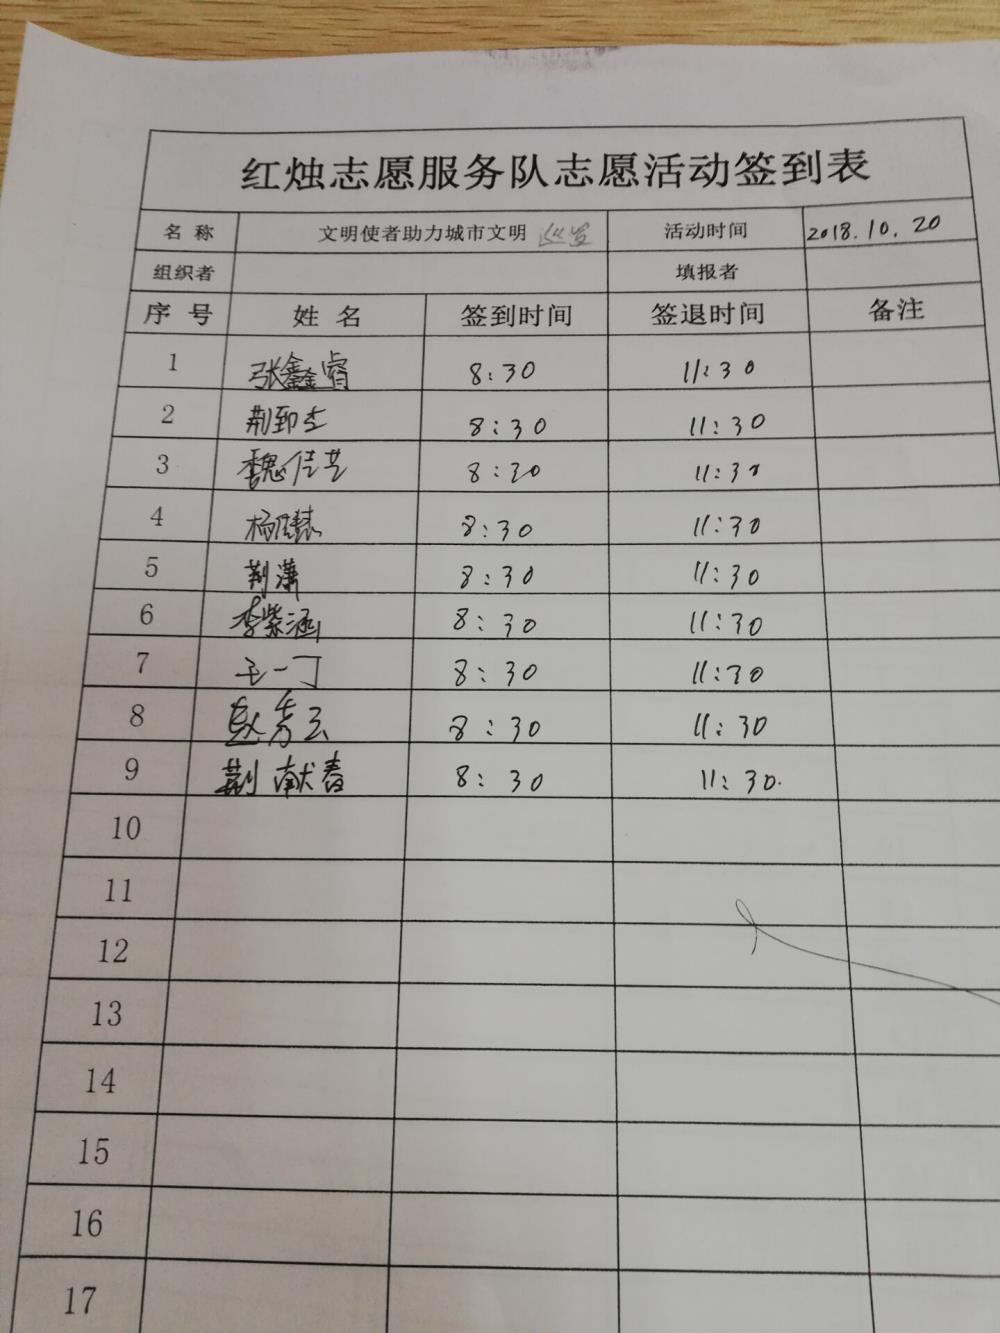 红烛志愿服务队志愿活动签到表
名称 文明使者助力城市文明 活动时间 2018.10.20
组织者 填报者
序号 姓名 签到时间 签退时间 备注
1 张鑫睿 8:30 11:30
2 荆 8:30 11:30
3 魏佳艺 8:30 11:30
4 杨 8:30 11:30
5 荆潇 8:30 11:30
6 李紫涵 8:30 11:30
7 王一丁 8:30 11:30
8 赵秀云 8:30 11:30
9 荆献春 8:30 11:30.
10
11
12
13
14
15
16
17